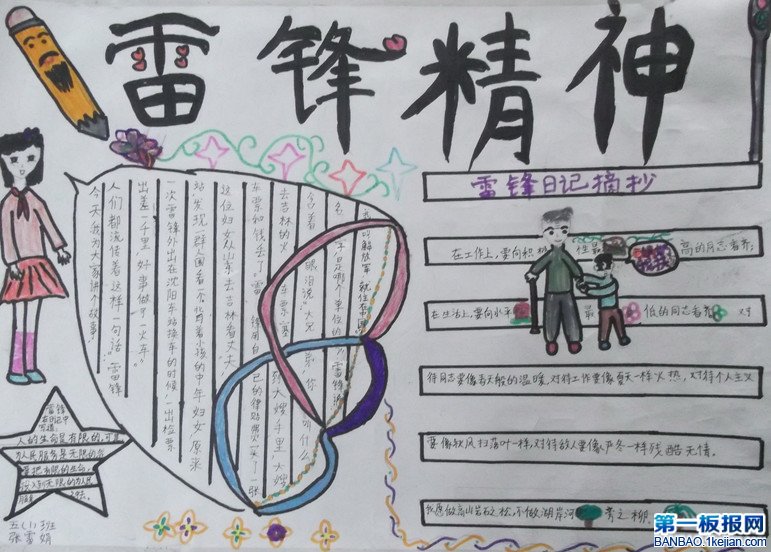 雷锋精神
今天我为大家讲个故事
人们都流传着这样一句话"雷锋
出差一千里,好事做了一火车"
一次雷锋外出在沈阳车站换车的时候,一出检票
站,发现一群人围着一个背着小孩的中年妇女,原来
这位妇女从山东去吉林看丈夫
车票和钱丢了雷锋用自己的津贴费买了一张
去吉林的火车票塞到大嫂手里大嫂
含着眼泪说:"大兄弟你叫什么
名字是哪个单位的"雷锋说
解放军就住在中国
雷锋日记摘抄
在工作上,要向积极性最高的同志看齐;
在生活上,要向水平最低的同志看齐 对
待同志要像春天般的温暖,对待工作要像夏天一样火热,对待个人主义
要像秋风扫落叶一样,对待敌人要像严冬一样残酷无情。
我愿做高山岩石之松,不做湖岸河旁之柳
雷锋
在日记中
写道:
人的生命是有限的,可是
为人民服务是无限的,我
要把有限的生命,
投入到无限的为人民
服务之中去。
五(1)班
张雪娟
第一板报网
BANBAO.1kejian.com